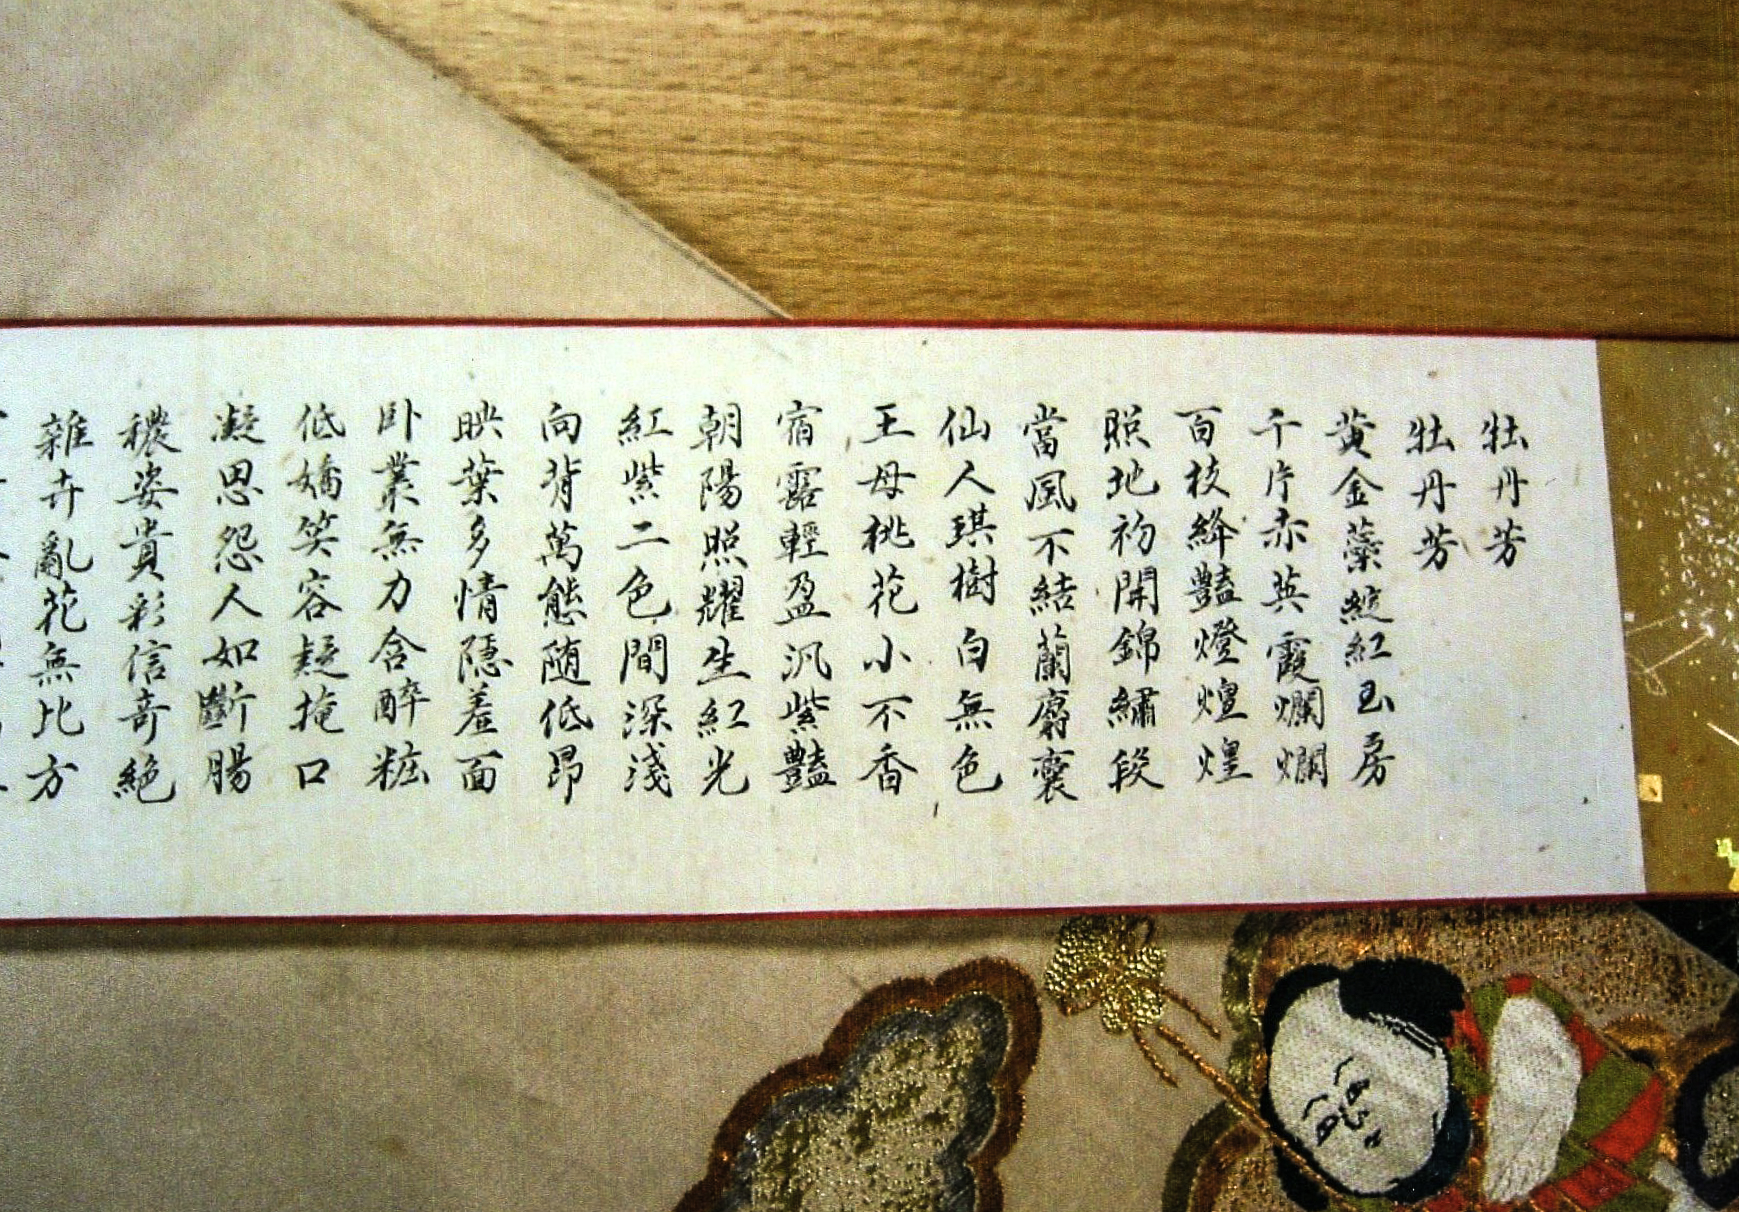 牡丹芳
牡丹芳
黄金蘂綻紅玉房
千片赤英霞爛爛
百枝絳豔燈煌煌
照地初開錦繡段
當風不結蘭麝囊
仙人琪樹白無色
王母桃花小不香
宿露輕盈汎紫豔
朝陽照耀生紅光
紅紫二色間深淺
向背萬態随低昂
映葉多情隱羞面
卧叢無力含醉粧
低嬌笑容疑掩口
凝思怨人如斷腸
穠姿貴彩信奇絕
雜卉亂花無比方